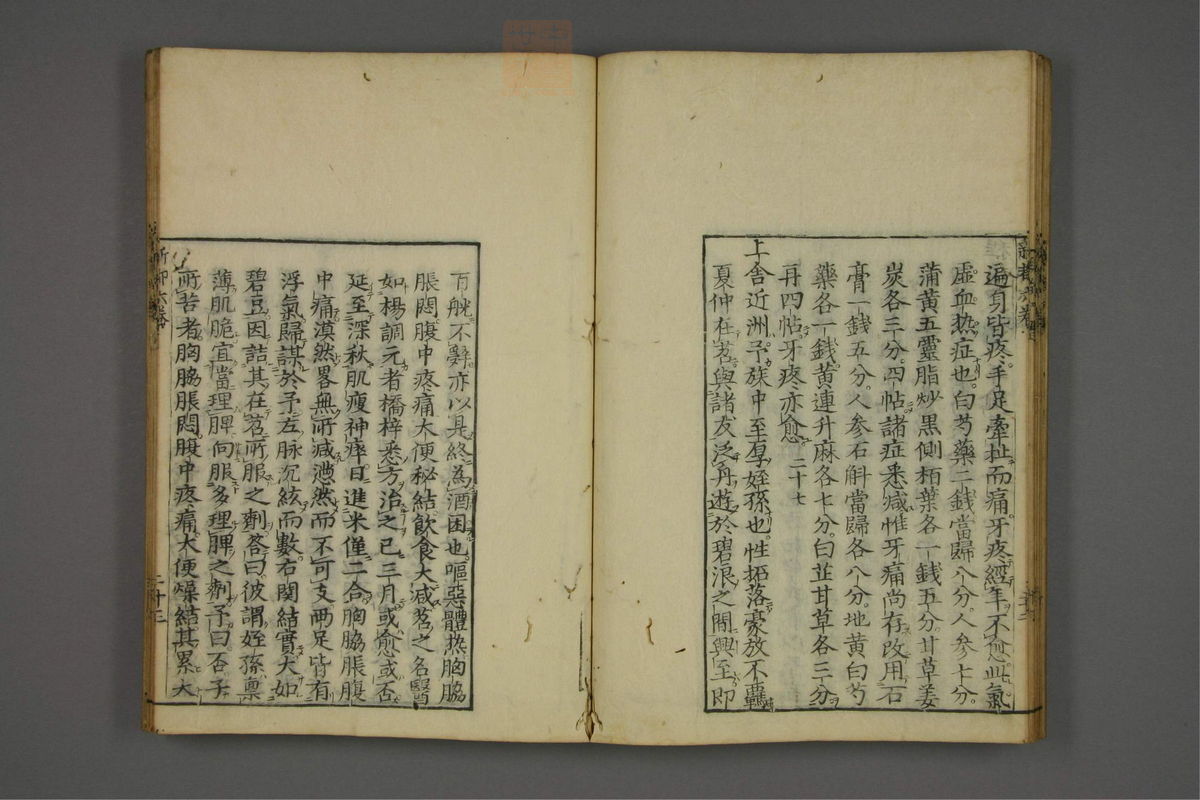 遍身皆疼手足牽扯而痛牙疼經年不愈此氣
虛血热症也白芍藥二錢當歸八分人參七分
蒲黃五靈脂炒黑側栢葉各一錢五分甘草姜
炭各三分四帖諸症悉减惟牙痛尚存改用石
膏一錢五分人參石斛當歸各八分地黃白芍
藥各一錢黃連升麻各七分白芷甘草各三分
再四帖牙疼亦愈 二十七
上舍近洲予族中至厚姪孫也性拓落豪放不羈
夏仲在苕與諸友泛舟遊於碧浪之間興至即
百觥不辭亦以是終為酒困也嘔惡體热胸脇
脹悶腹中疼痛大便秘結飲食大减苕之名醫
如楊調元者橋梓悉方治之已三月或愈或否
延至深秋肌瘦神瘁日進米僅二合胸脇脹腹
中痛漠然畧無所减憊然而不可支兩足皆有
浮氣歸謀於予左脉沉絃而數右関結實大如
碧豆因詰其在苕所服之劑答曰彼謂姪孫禀
薄肌脆宜當理脾向服多理脾之劑予曰否子
所苦者胸脇脹悶腹中疼痛大便燥結其累大
二十三